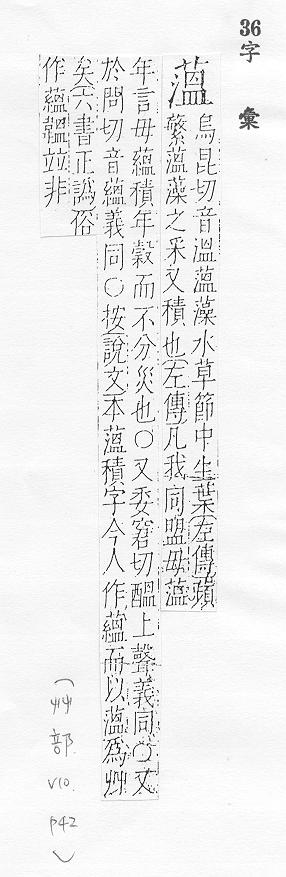 36
字彙
薀
烏昆切音溫薀藻水草節中生葉左傳蘋
蘩薀藻之采又積也左傳凡我同盟毋薀
年言毋蘊積年穀而不分災也〇又委窘切醞上聲義同〇又
於問切音蘊義同〇按說文本薀積字今人作蘊而以薀爲艸
矣六書正譌俗
作蘊韞竝非
(艸部. V10. P42)